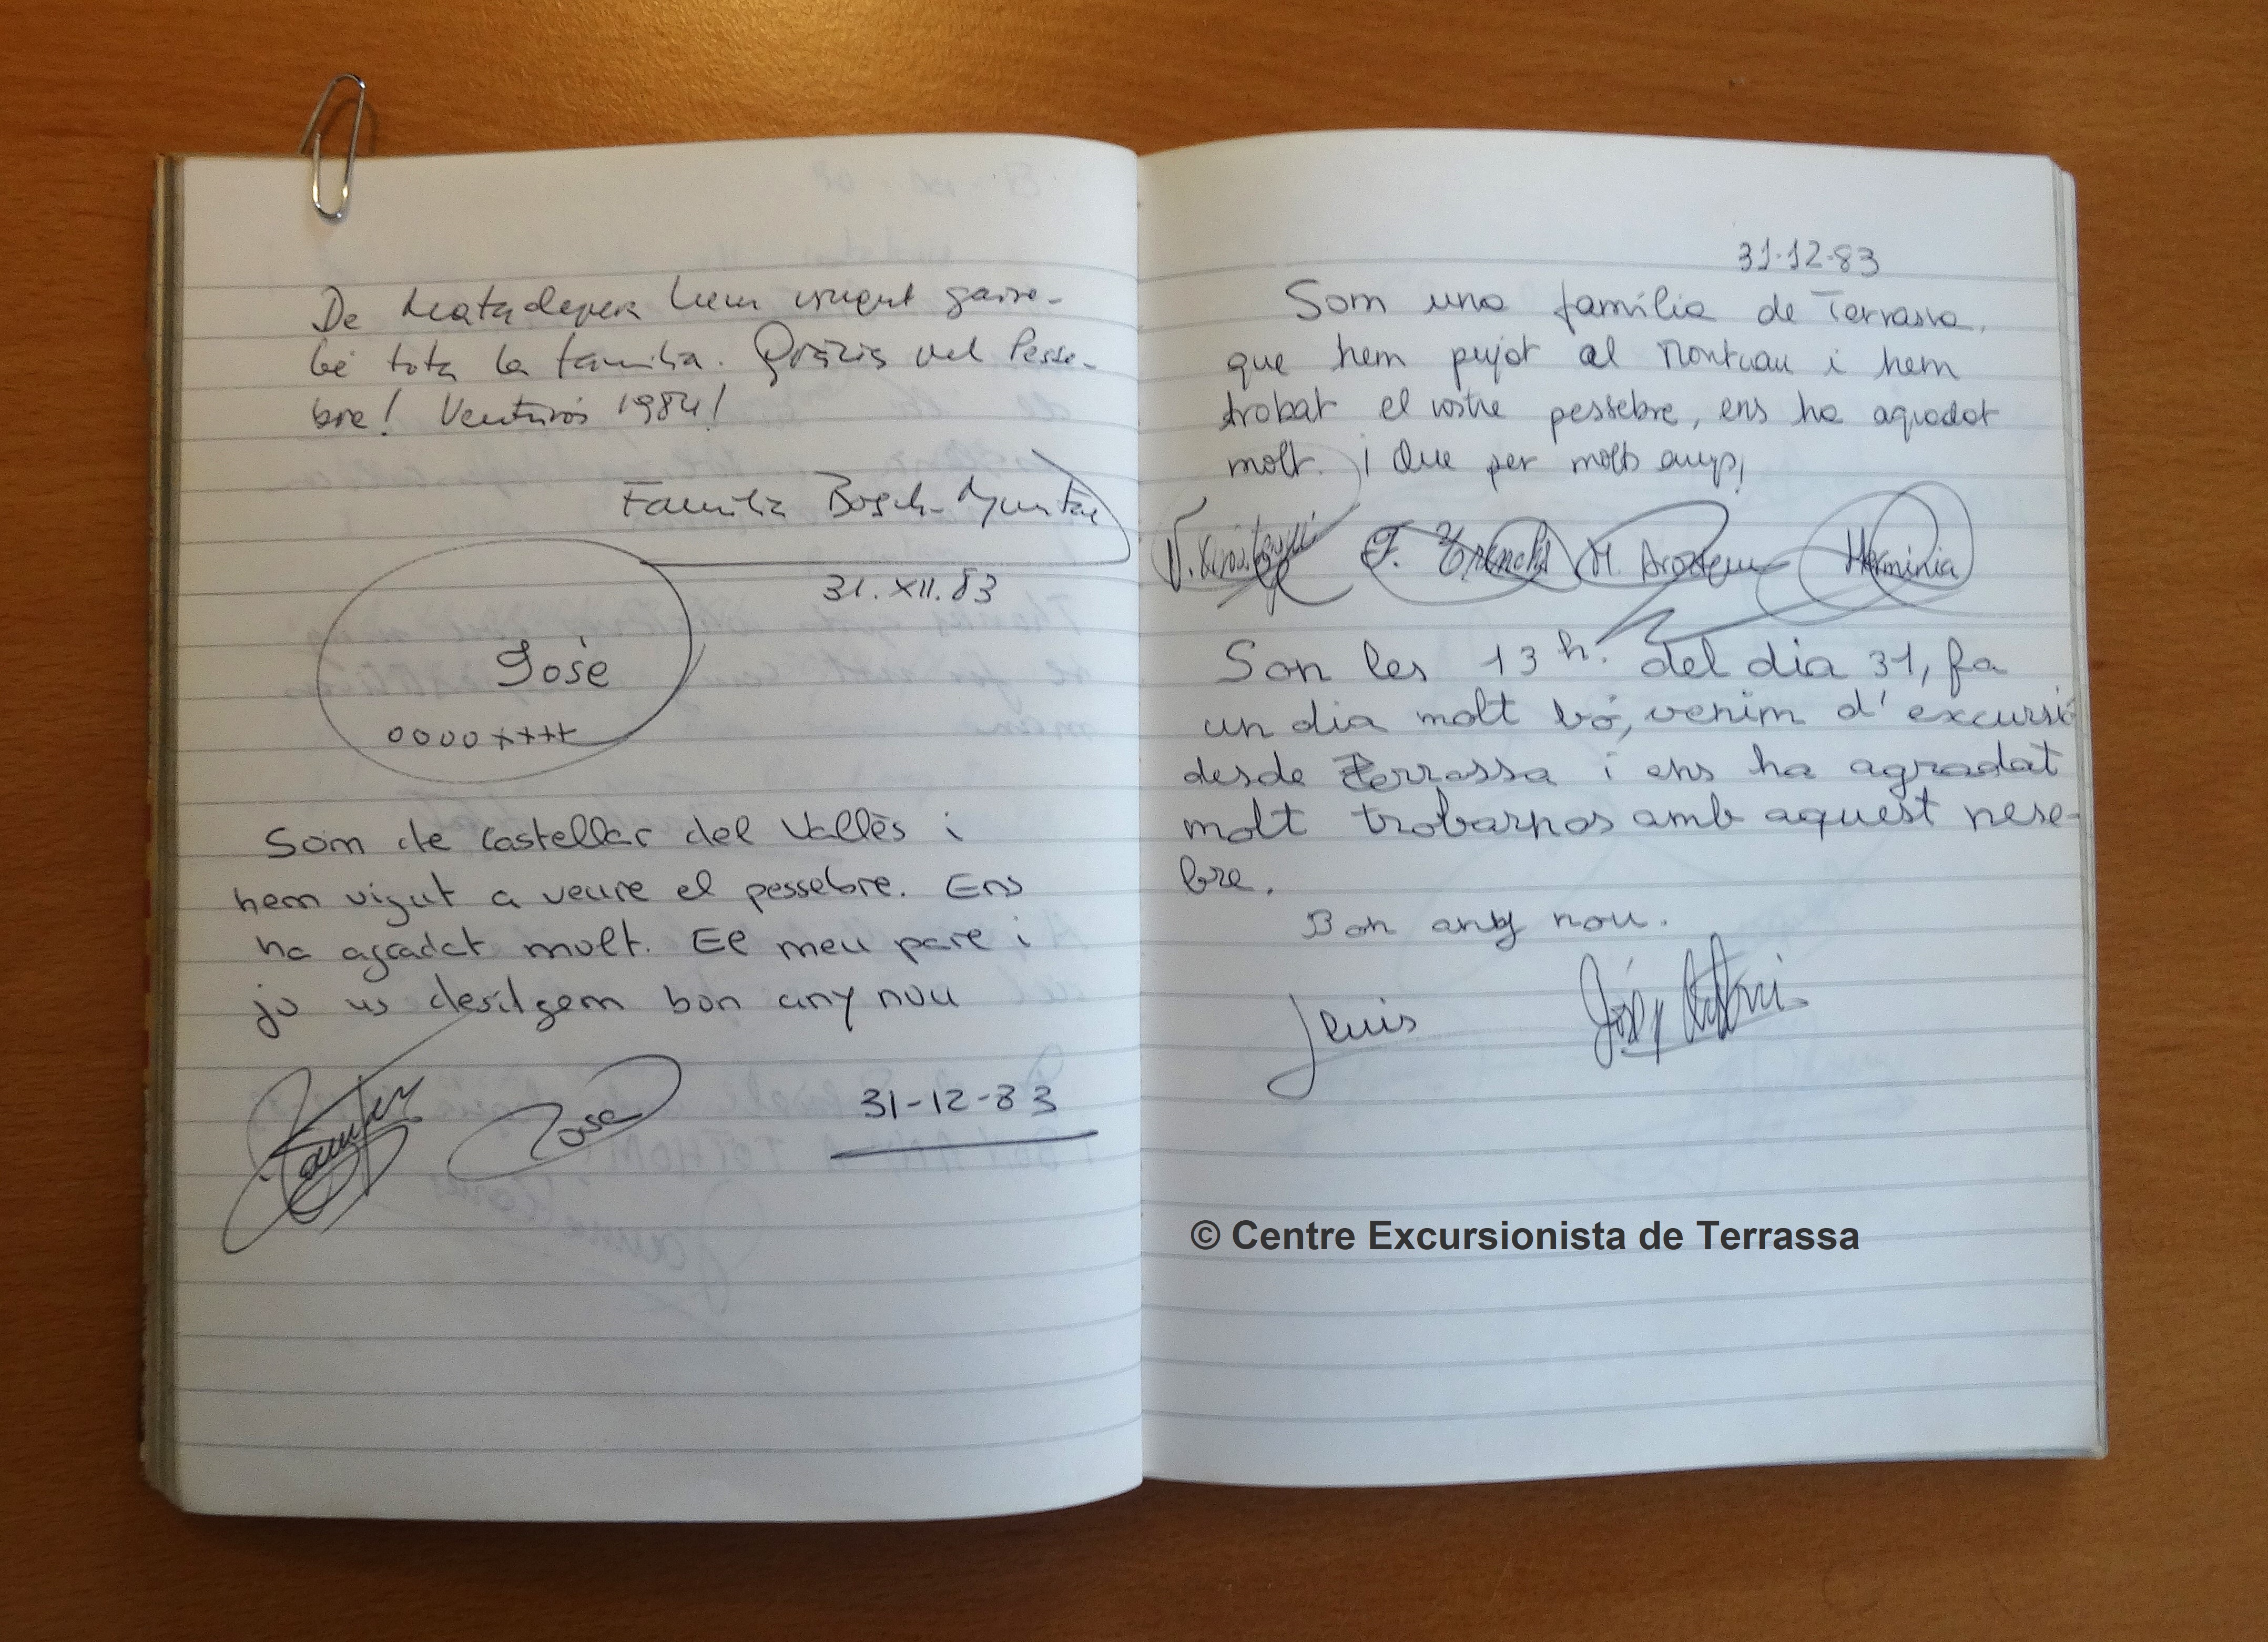 De Matadepera hem vingut gaire-
bé tota la família. Gràcies pel Pesse-
bre! Venturós 1984!
Família Bosch-Muntal
31.XII.83
José
0000++++
Som de Castellar del Vallès i
hem vigut a veure el pessebre. Ens
ha agradat molt. El meu pare i
jo us desitgem bon any nou
José
31-12-83
31-12-83
Som una família de Terrassa,
que hem pujat al Montcau i hem
trobat el vostre pessebre, ens ha agradat
molt. ¡ Que per molts anys!
F. Trenchs M. Herminia
Son les 13 h. del dia 31, fa
un dia molt bó, venim d'excursió
desde Terrassa i ens ha agradat
molt trobarnos amb aquest pese-
bre.
Bon any nou.
Lluis
© Centre Excursionista de Terrassa